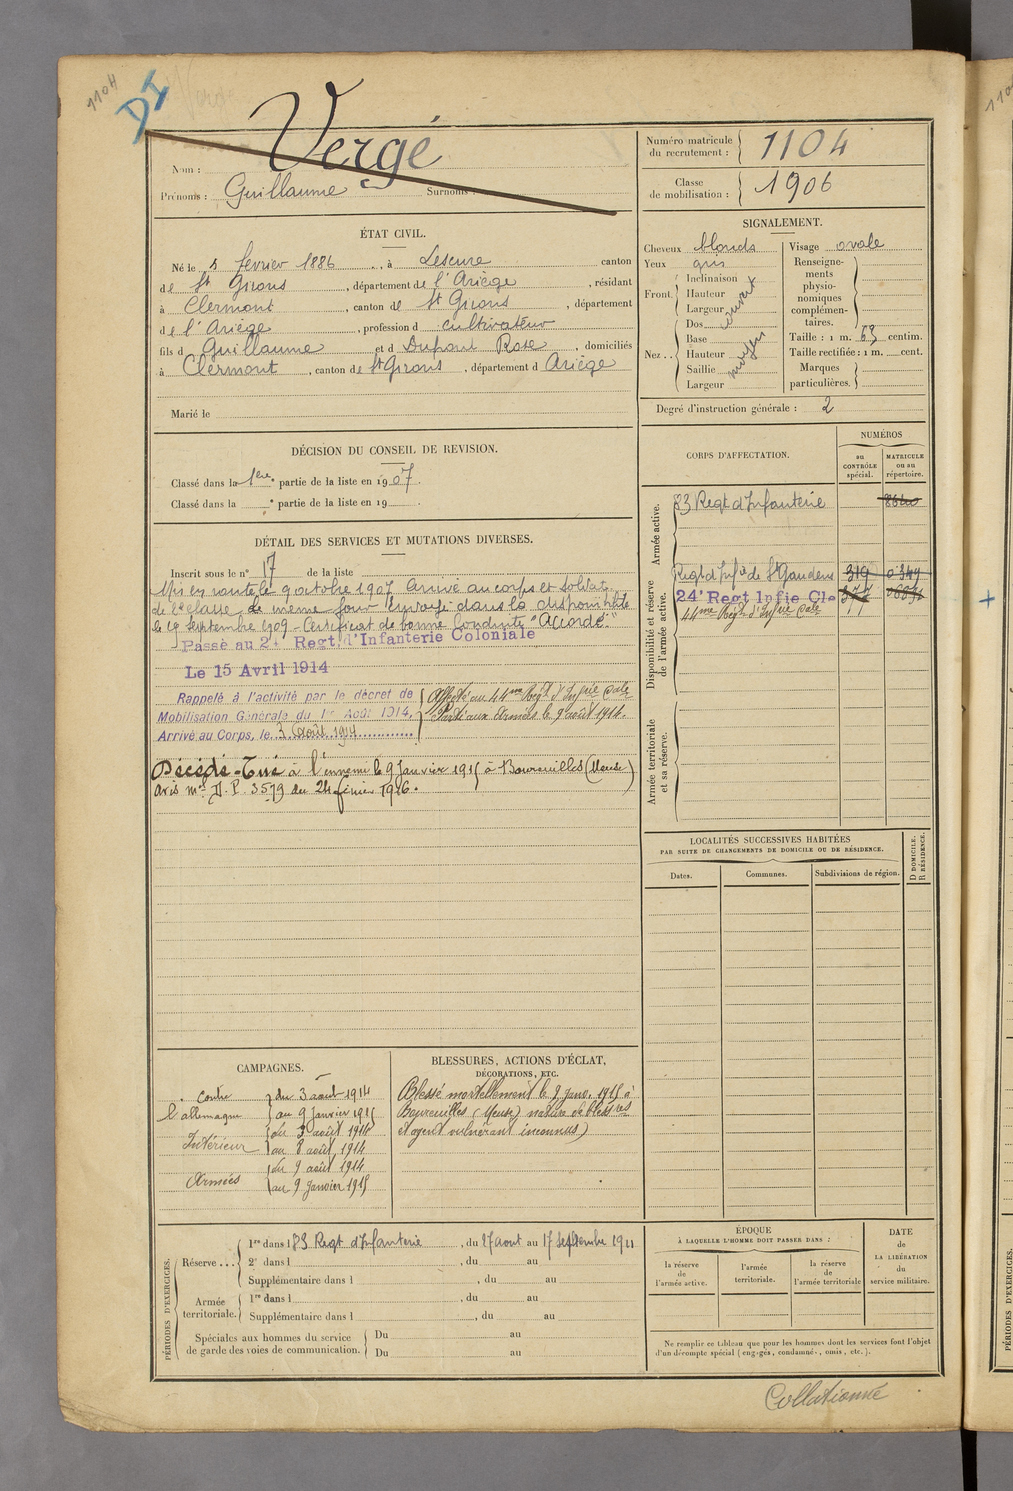 1104
DI
Nom : Vergé
Prénoms : Guillaume Surnoms :
ÉTAT CIVIL.
Né le 5 février 1886, à Lescure canton
de St Girons, département de l'Ariège, résidant
à Clermont, canton de St Girons, département
de l'Ariège, profession d cultivateur
fils d Guillaume et d Dupont Rose, domiciliés
à Clermont, canton de St Girons, département d Ariège
Marié le
DÉCISION DU CONSEIL DE REVISION.
Classé dans la 1ère partie de la liste en 1907.
Classé dans la e partie de la liste en 19
DÉTAIL DES SERVICES ET MUTATIONS DIVERSES.
Inscrit sous le n° 17 de la liste
Mis en route le 9 octobre 1907 arrivé au corps et soldat
de 2e classe le même jour envoyé dans la disponibilité
le 19 septembre 1909 - Certificat de bonne conduite "Accordé"
Passé au 24 Regt d'Infanterie Coloniale
Le 15 Avril 1914
Rappelé à l'activité par le décret de
Mobilisation Générale du 1er Août 1914,
Arrivé au Corps, le 3 Août 1914
Affecté au 44me Regt d'Infrie Cale
Parti aux Armées le 9 août 1914.
Décédé - Tué à l'ennemi le 9 Janvier 1915 à Boureuilles (Meuse)
avis mel D.P. 3579 du 24 février 1916.
CAMPAGNES.
contre l'allemagne
du 3 août 1914
au 9 janvier 1915
Intérieur
du 3 août 1914
au 8 août 1914
Armées
du 9 août 1914
au 9 Janvier 1915
BLESSURES, ACTIONS D'ÉCLAT,
DÉCORATIONS, ETC.
Blessé mortellement le 9 janv. 1915 à
Boureuilles (Meuse) nature de blessres
et agent vulnérant inconnus)
PÉRIODES D'EXERCICES.
Réserve ...
1re dans l 83 Regt d'Infanterie, du 17 aout au 17 septembre 1911
2e dans l , du au
Supplémentaire dans l , du au
Armée territoriale.
1re dans l , du au
Supplémentaire dans l , du au
Spéciales aux hommes du service
de garde des voies de communication.
Du au
Du au
Numéro matricule
du recrutement : 1104
Classe
de mobilisation : 1906
SIGNALEMENT.
Cheveux blonds
Yeux gris
Front.
Inclinaison
Hauteur
Largeur
Nez ..
Dos
Base
Hauteur
Saillie
Largeur
moyen
Visage ovale
Renseigne-
ments
physio-
nomiques
complémen-
taires.
Taille : 1 m. 63 centim.
Taille rectifiée : 1 m. cent.
Marques
particulières.
Degré d'instruction générale : 2
CORPS D'AFFECTATION.
NUMÉROS
au
CONTRÔLE
spécial.
MATRICULE
ou au
répertoire.
Armée active.
83 Regt d'Infanterie
Disponibilité et réserve
de l'armée active.
Regt d'Infie de St Gaudens 319 0349
24e Regt Infie Cle
44me Régt d'Infrie Cale
Armée territoriale
et sa réserve.
LOCALITÉS SUCCESSIVES HABITÉES
PAR SUITE DE CHANGEMENTS DE DOMICILE OU DE RÉSIDENCE.
Dates.
Communes.
Subdivisions de région.
D DOMICILE.
R RÉSIDENCE.
ÉPOQUE
À LAQUELLE L'HOMME DOIT PASSER DANS :
la réserve
de
l'armée active.
l'armée
territoriale.
la réserve
de
l'armée territoriale
DATE
de
LA LIBÉRATION
du
service militaire.
Ne remplir ce tableau que pour les hommes dont les services font l'objet
d'un décompte spécial (engagés, condamnés, omis, etc.).
Collationné
PÉRIODES D'EXERCICES.